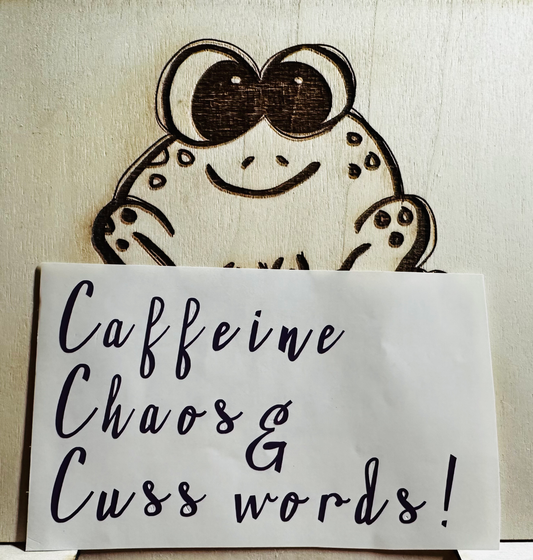 Caffeine
Chaos &
Cuss words!